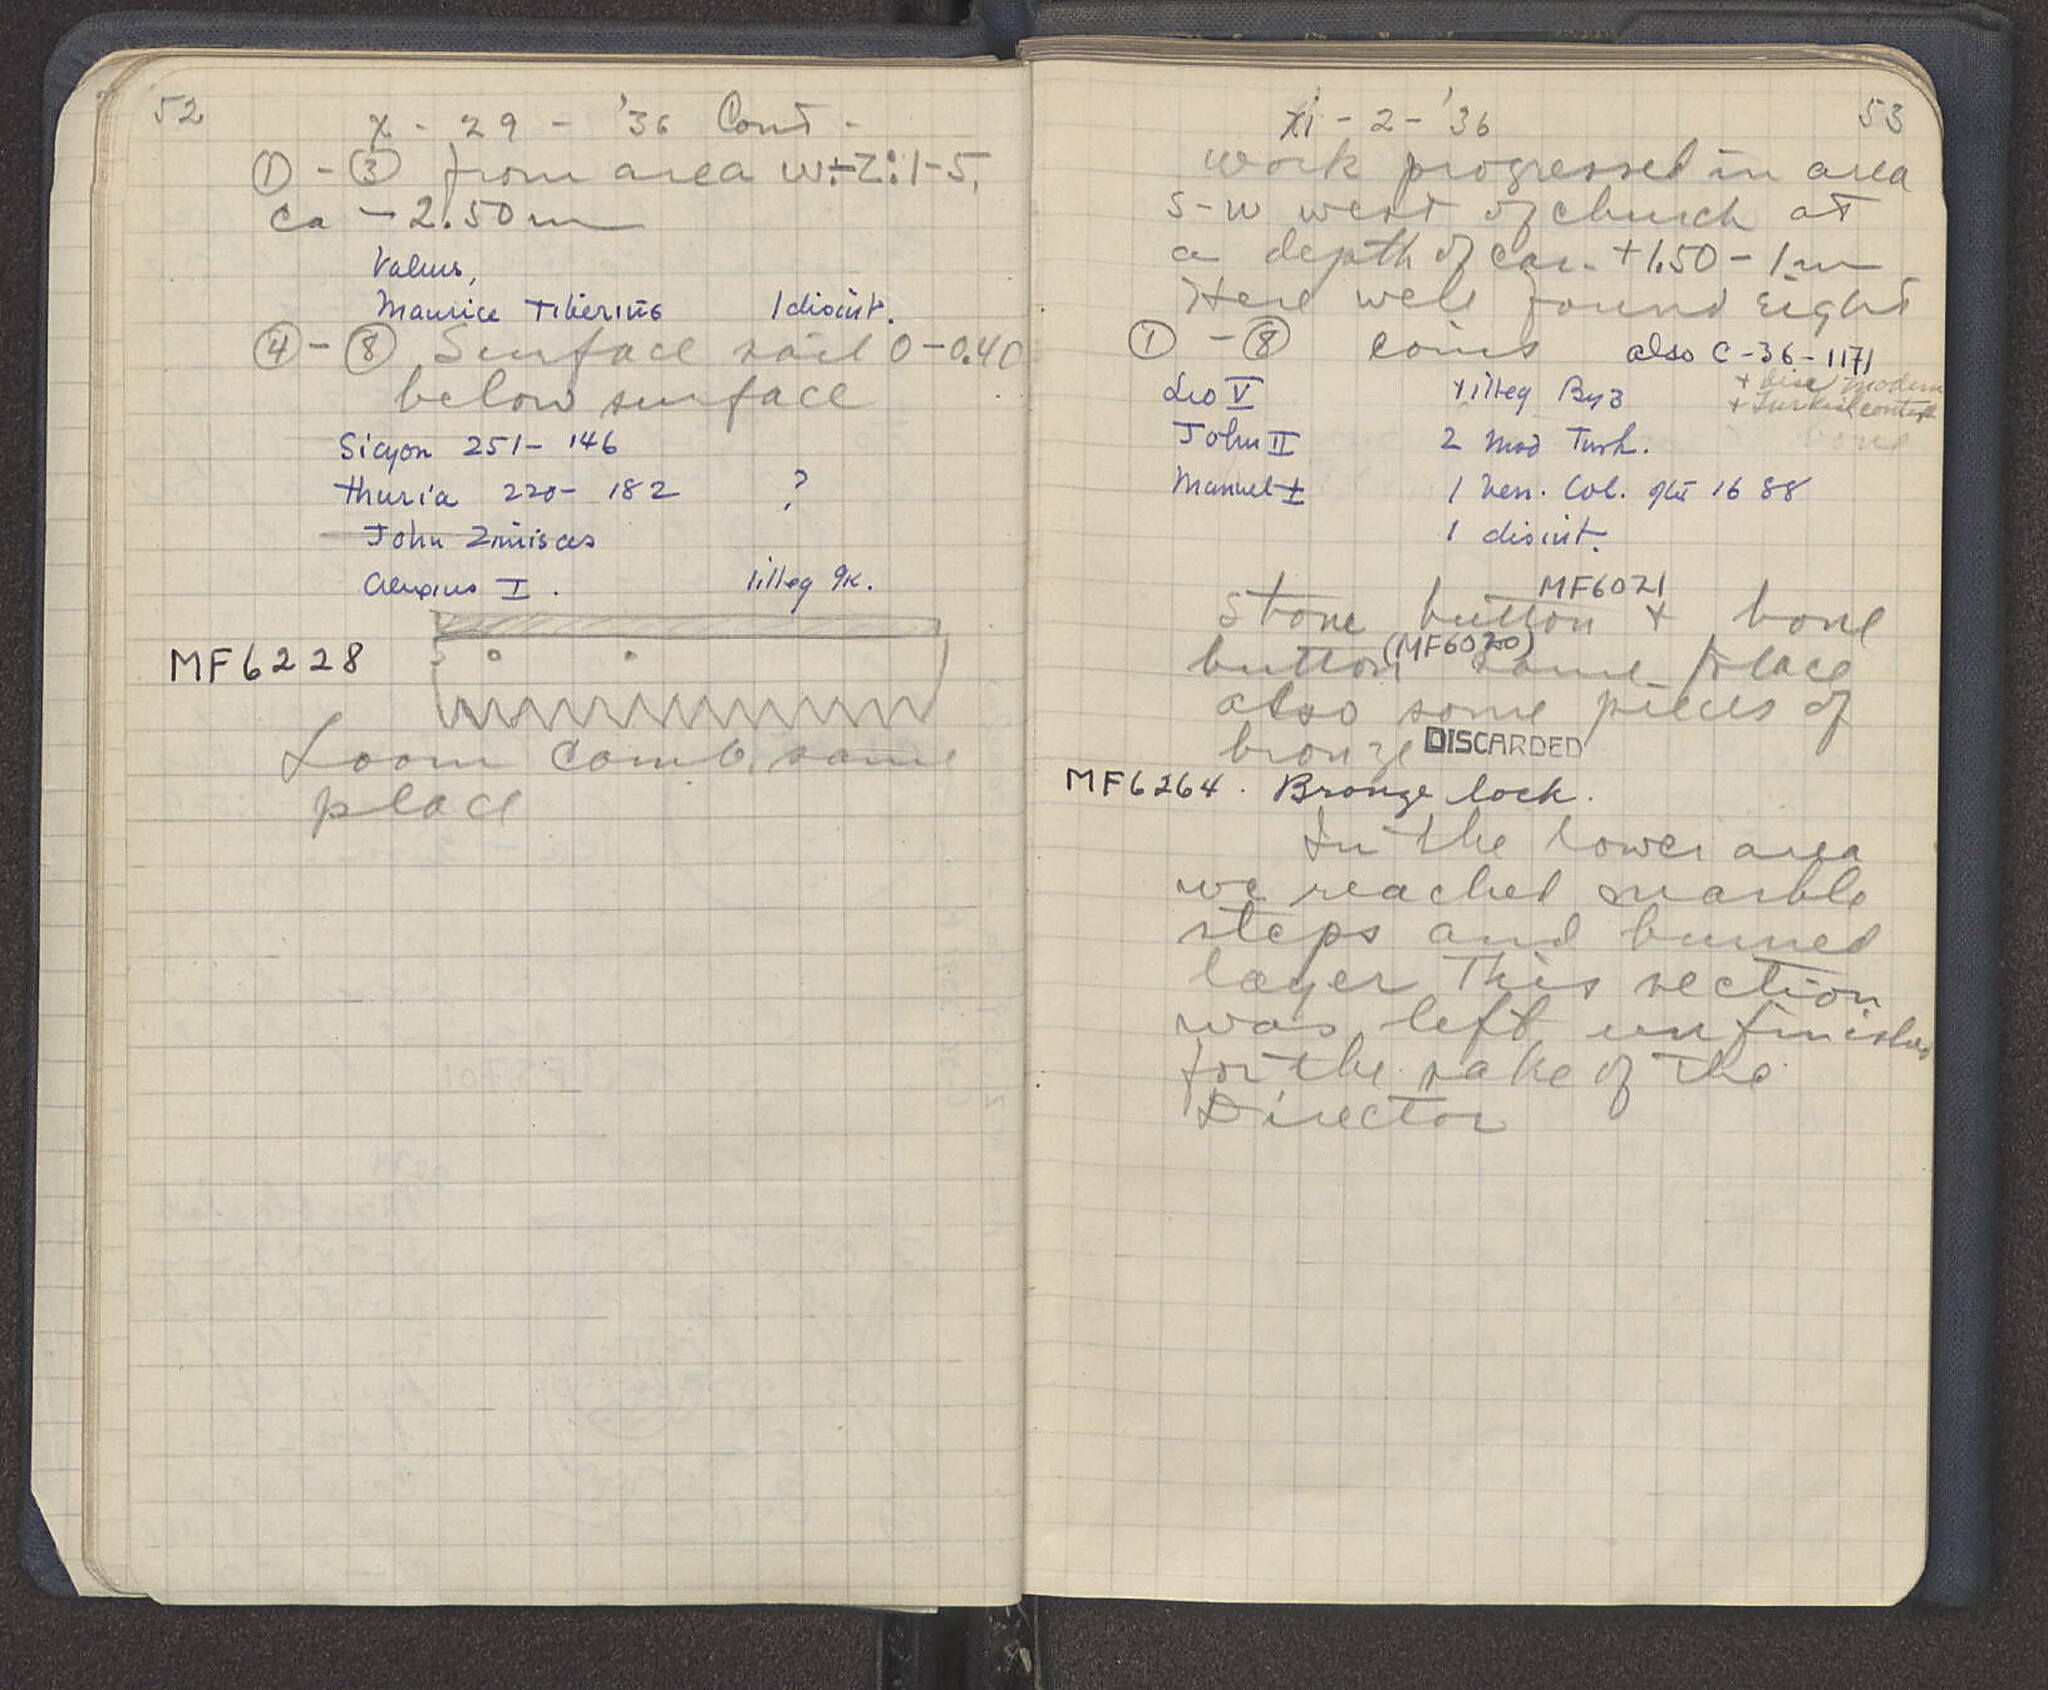 52
x - 29 - '36 Cont -
① - ③ from area W÷Z:1-5,
ca - 2.50 m
Valens,
Maurice Tiberius 1 disint.
④ - ⑧ Surface soil 0-0.40
below surface
Sicyon 251- 146
Thuria 220- 182 ?
John Zimisces
Alexius I . 1 illeg gk.
MF6228
Loom comb, same
place
53
xi - 2 - '36
Work progressed in area
S-W west of church at
a depth of +1.50 - 1m
Here were found eight
① - ⑧ coins also C-36-1171
Leo V illeg Byz + modern
+ Turkish
John II 2 Mod Turk.
Manuel I 1 Ven. Col. 1688
1 disint.
MF6021
Stone button + bone
button (MF6020) same place
also some pieces of
bronze DISCARDED
MF6264 . Bronze lock.
In the lower area
we reached marble
steps and burned
layer This section
was left unfinished
for the sake of the
Director